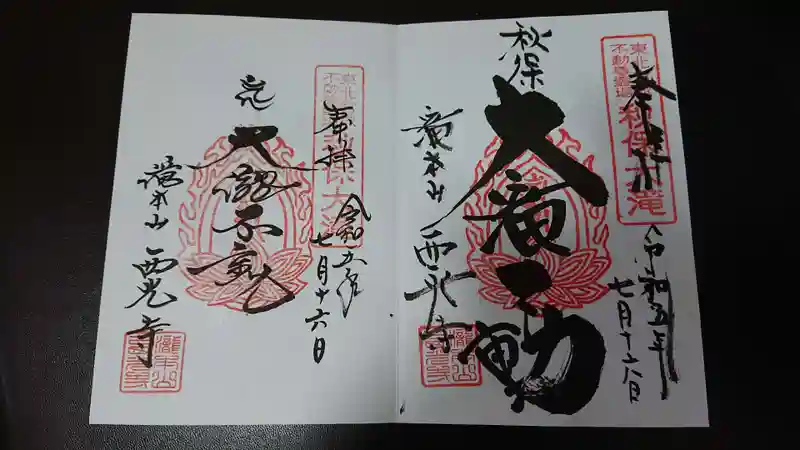 東北
不動尊霊場
秋保大滝
奉拝
令和五年
七月十六日
秋保
大滝不動
滝本山
西光寺
東北
秋保大滝
奉拝
令和五年
七月十六日
大瀧不動
滝本山
西光寺